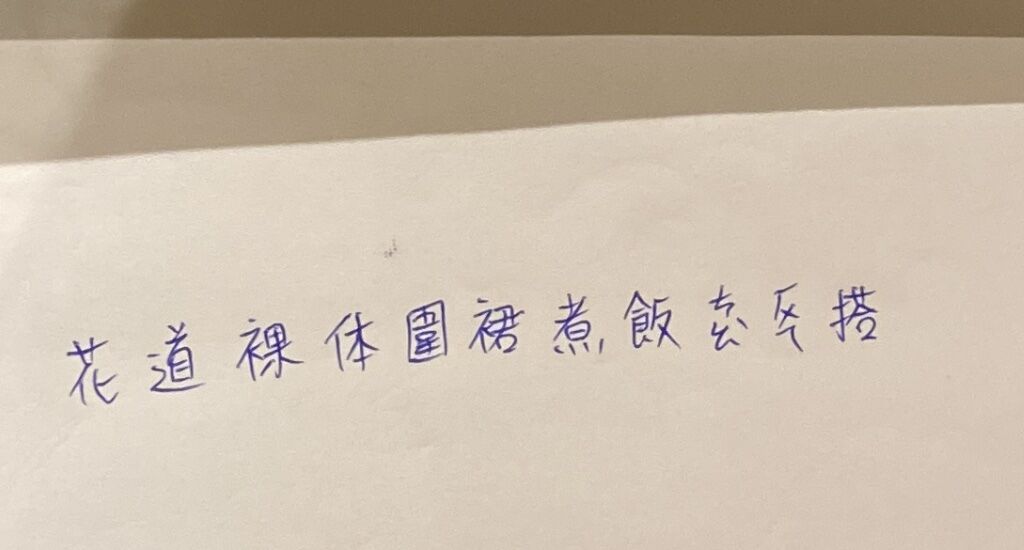 花道裸体圍裙煮飯去不搭